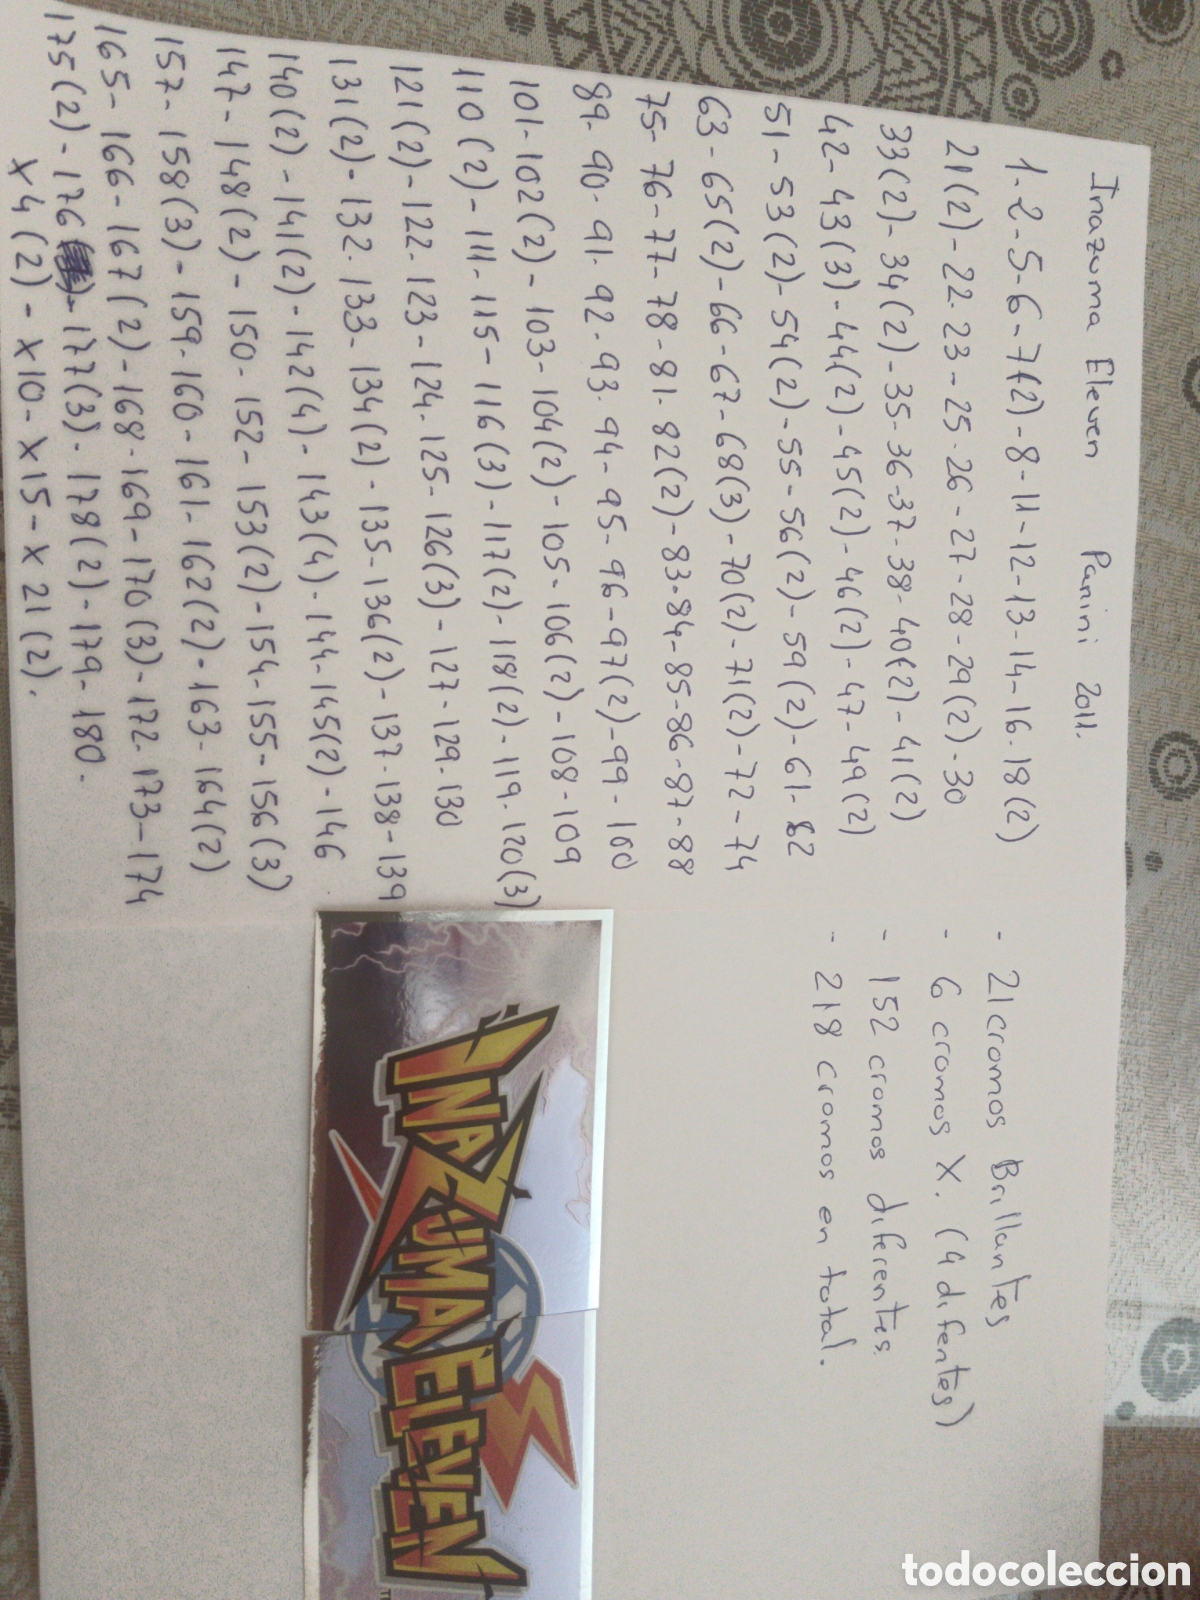 Inazuma Eleven Panini 2011.
1-2-5-6-7(2)-8-11-12-13-14-16-18(2)
21(2)-22-23-25-26-27-28-29(2)-30
33(2)-34(2)-35-36-37-38-40(2)-41(2)
42-43(3)-44(2)-45(2)-46(2)-47-49(2)
51-53(2)-54(2)-55-56(2)-59(2)-61-62
63-65(2)-66-67-68(3)-70(2)-71(2)-72-74
75-76-77-78-81-82(2)-83-84-85-86-87-88
89-90-91-92-93-94-95-96-97(2)-99-100
101-102(2)-103-104(2)-105-106(2)-108-109
110(2)-111-115-116(3)-117(2)-118(2)-119-120(3)
121(2)-122-123-124-125-126(3)-127-129-130
131(2)-132-133-134(2)-135-136(2)-137-138-139
140(2)-141(2)-142(4)-143(4)-144-145(2)-146
147-148(2)-150-152-153(2)-154-155-156(3)
157-158(3)-159-160-161-162(2)-163-164(2)
165-166-167(2)-168-169-170(3)-172-173-174
175(2)-176-177(3)-178(2)-179-180.
x4(2)-x10-x15-x21(2).
- 21 cromos Brillantes
- 6 cromos X. (4 difentes)
- 152 cromos diferentes.
- 218 cromos en total.
INAZUMA ELEVEN
todocoleccion